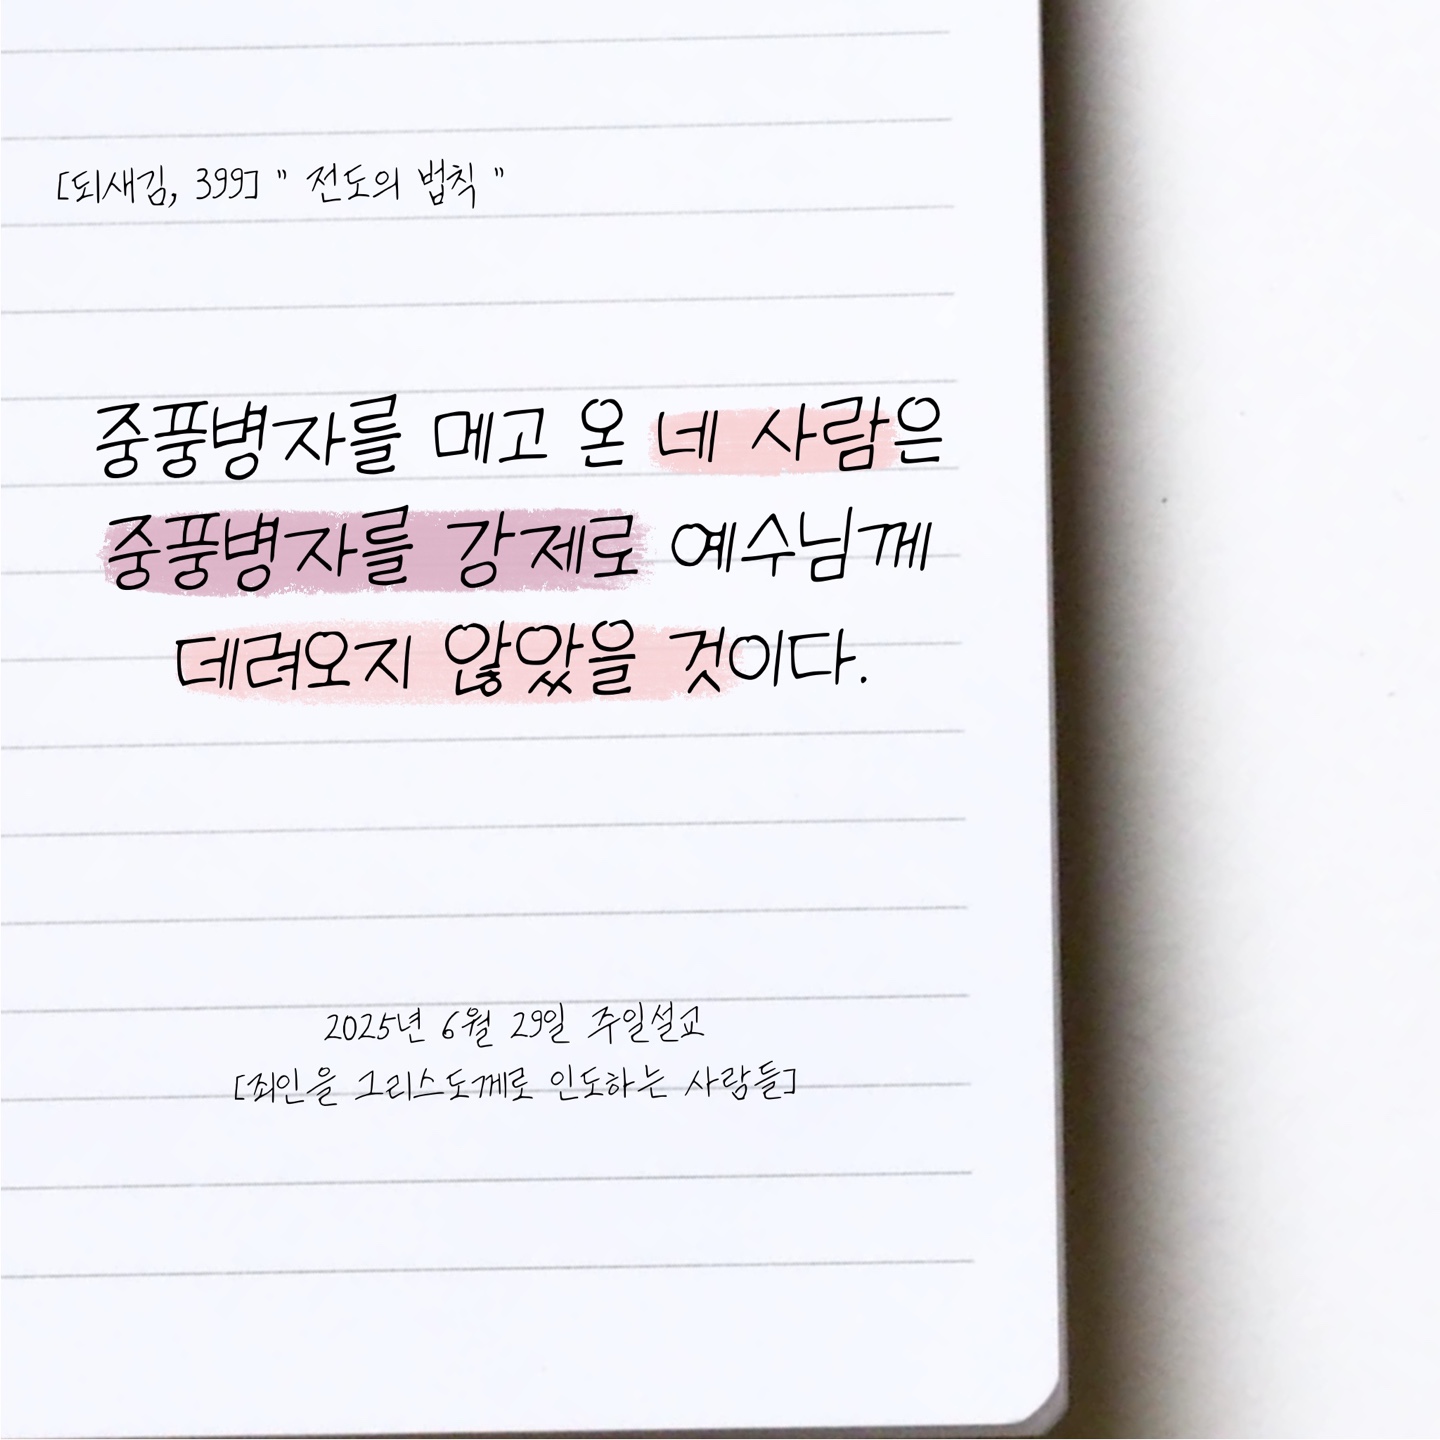 [되새김, 399] " 전도의 법칙 "
중풍병자를 메고 온 네 사람은
중풍병자를 강제로 예수님께
데려오지 않았을 것이다.
2025년 6월 29일 주일설교
[죄인을 그리스도께로 인도하는 사람들]